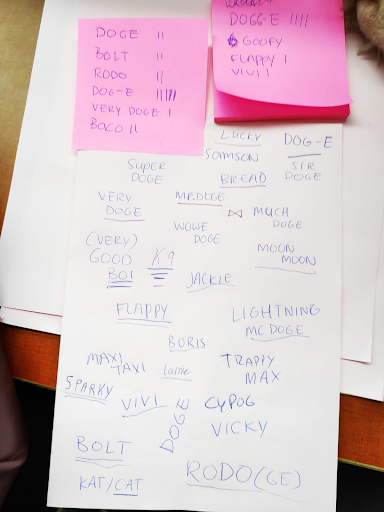 DOGE II
BOLT II
RODO II
DOG-E IIIII
VERY DOGE I
BOCO II
DOGG-E IIII
GOOFY
FLAPPY I
VIVI I
LUCKY
DOG-E
SAMSON
SUPER
DOGE
BREAD
SIR
DOGE
VERY
DOGE
MEDOGE
MUCH
DOGE
WOWE
DOGE
(VERY)
GOOD
BOI
K9
MOON
MOON
JACKIE
FLAPPY
LIGHTNING
MC DOGE
BORIS
MAXI
TAXI
TRAPPY
MAX
SPARKY
VIVI
DOGE
CYPOG
VICKY
BOLT
RODO(GE)
KAT/CAT